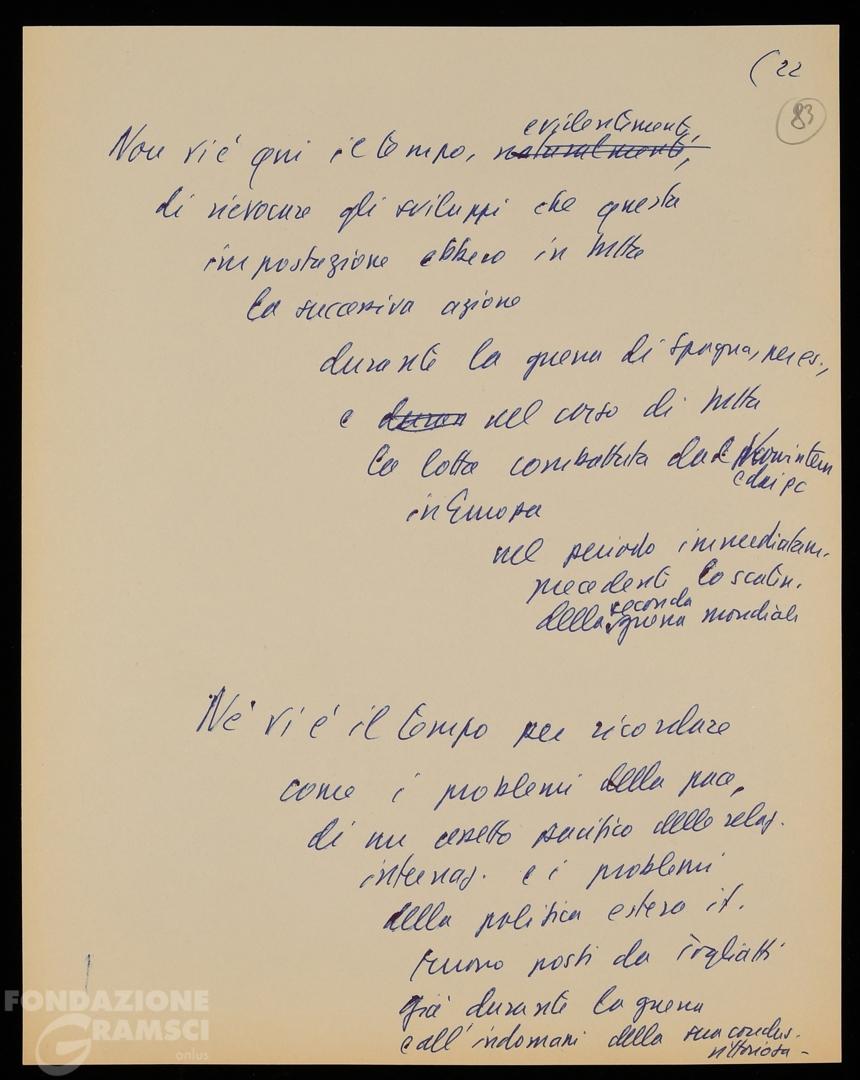 ( 22
83
evidentemente,
Non vi è qui il tempo, naturalmente,
di rievocare gli sviluppi che questa
impostazione ebbero in tutta
la successiva azione
durante la guerra di Spagna, per es.,
e duran nel corso di tutta
la lotta combattuta dal Komintern
e dai pc
in Europa
nel periodo immediatam.
precedente lo scaten.
seconda
della guerra mondiale
Né vi è il tempo per ricordare
come i problemi della pace,
di un assetto pacifico delle relaz.
internaz. e i problemi
della politica estera it.
furono posti da Togliatti
già durante la guerra
e all'indomani della sua conclus.
vittoriosa -
FONDAZIONE
GRAMSCI
onlus